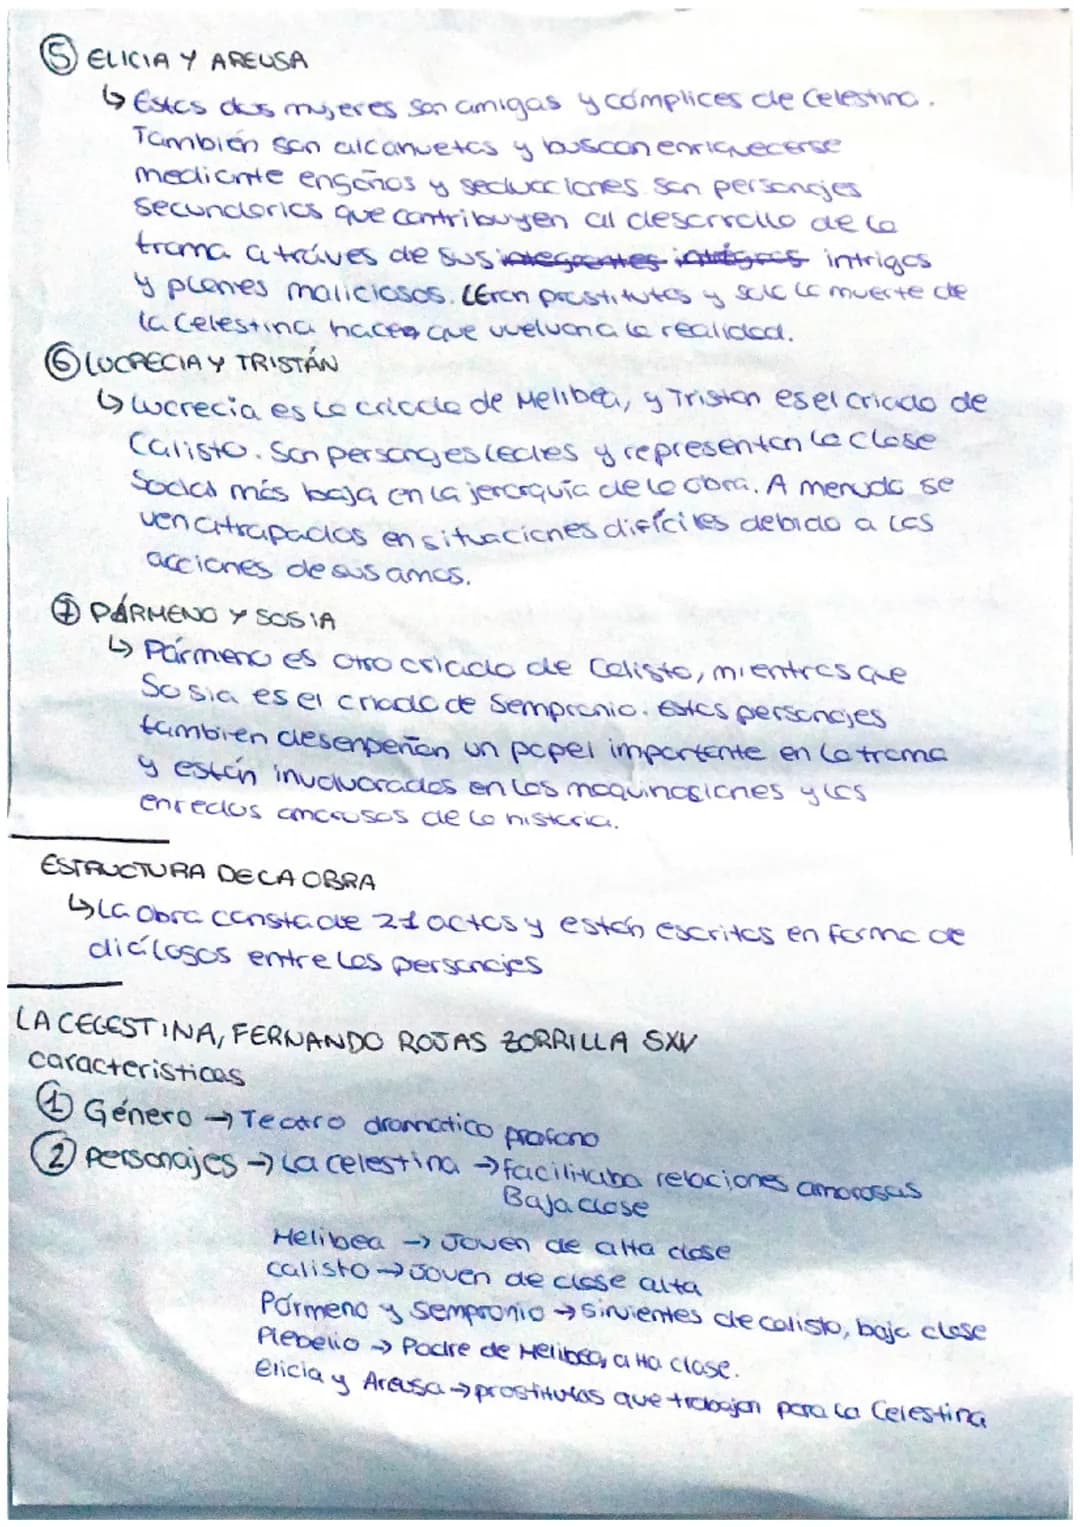 ⑤ ELICIA Y AREUSA
↳ Estas dos mujeres son amigas y cómplices de Celestina.
También son alcahuetas y buscan enriquecerse
mediante engaños y seducciones. Son personajes
secundarios que contribuyen al desarrollo de la
trama a tráves de sus integrantes intrigas
y planes maliciosos. (Eran prostitutas y solo la muerte de
la Celestina hace que vuelvan a la realidad.
⑥ LUCRECIA Y TRISTÁN
↳ Lucrecia es la criada de Melibea, y Tristan es el criado de
Calisto. Son personajes leales y representan la clase
Social más baja en la jerarquía de la obra. A menudo, se
ven atrapados en situaciones difíciles debido a las
acciones de sus amos.
⑦ PÁRMENO Y SOSIA
↳ Pármeno es otro criado de Calisto, mientras que
Sosia es el criado de Sempronio. Estos personajes
también desenpeñan un papel importante en la trama
y están involucrados en las maquinaciones y los
enredos amorosos de la historia.
ESTRUCTURA DE LA OBRA
↳ La obra consta de 21 actos y están escritos en forma de
diálogos entre los personajes
LA CELESTINA, FERNANDO ROJAS ZORRILLA SXV
caracteristicas
① Género → Teatro dramatico profano
② Personajes → La celestina → facilitaba relaciones amorosas
Baja clase
Melibea → Joven de alta clase
calisto → Joven de clase alta
Pármeno y Sempronio → Sirvientes de calisto, baja clase
Plebelio → Padre de Melibea, alta clase.
Elicia y Areusa → prostitutas que trabajan para la Celestina